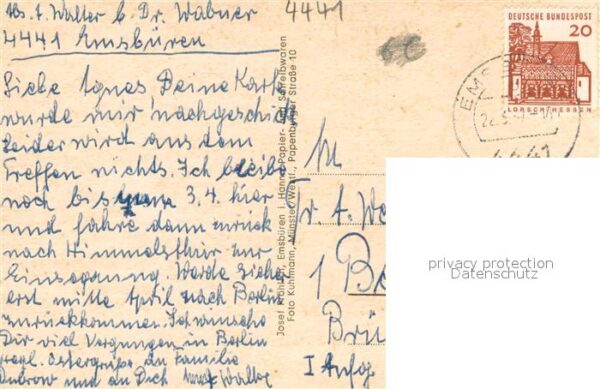 Abs. A. Walter b. Dr. Wabner
4441 Emsbüren
4441
Liebe Agnes Deine Karte
wurde mir nachgeschickt
Leider wird aus dem
Treffen nichts. Ich bleibe
noch bis zum 3.4. hier
und fahre dann zurück
nach Himmelsthür zur
Einsegnung. Werde sicher
erst mitte April nach Berlin
zurückkommen. Ich wünsche
Dir viel Vergnügen in Berlin
herzl. Ostergrüße an Familie
Dubrow und an Dich Walter
Emsbüren i. Hann. Papier- und Schreibwaren
Foto Kuhlmann, Münster/Westf., Papenburger Straße 10
DEUTSCHE BUNDESPOST
20
LORSCH/HESSEN
EMS
4441
v. A. We
1 Be
Brü
I Aufg.
privacy protection
Datenschutz